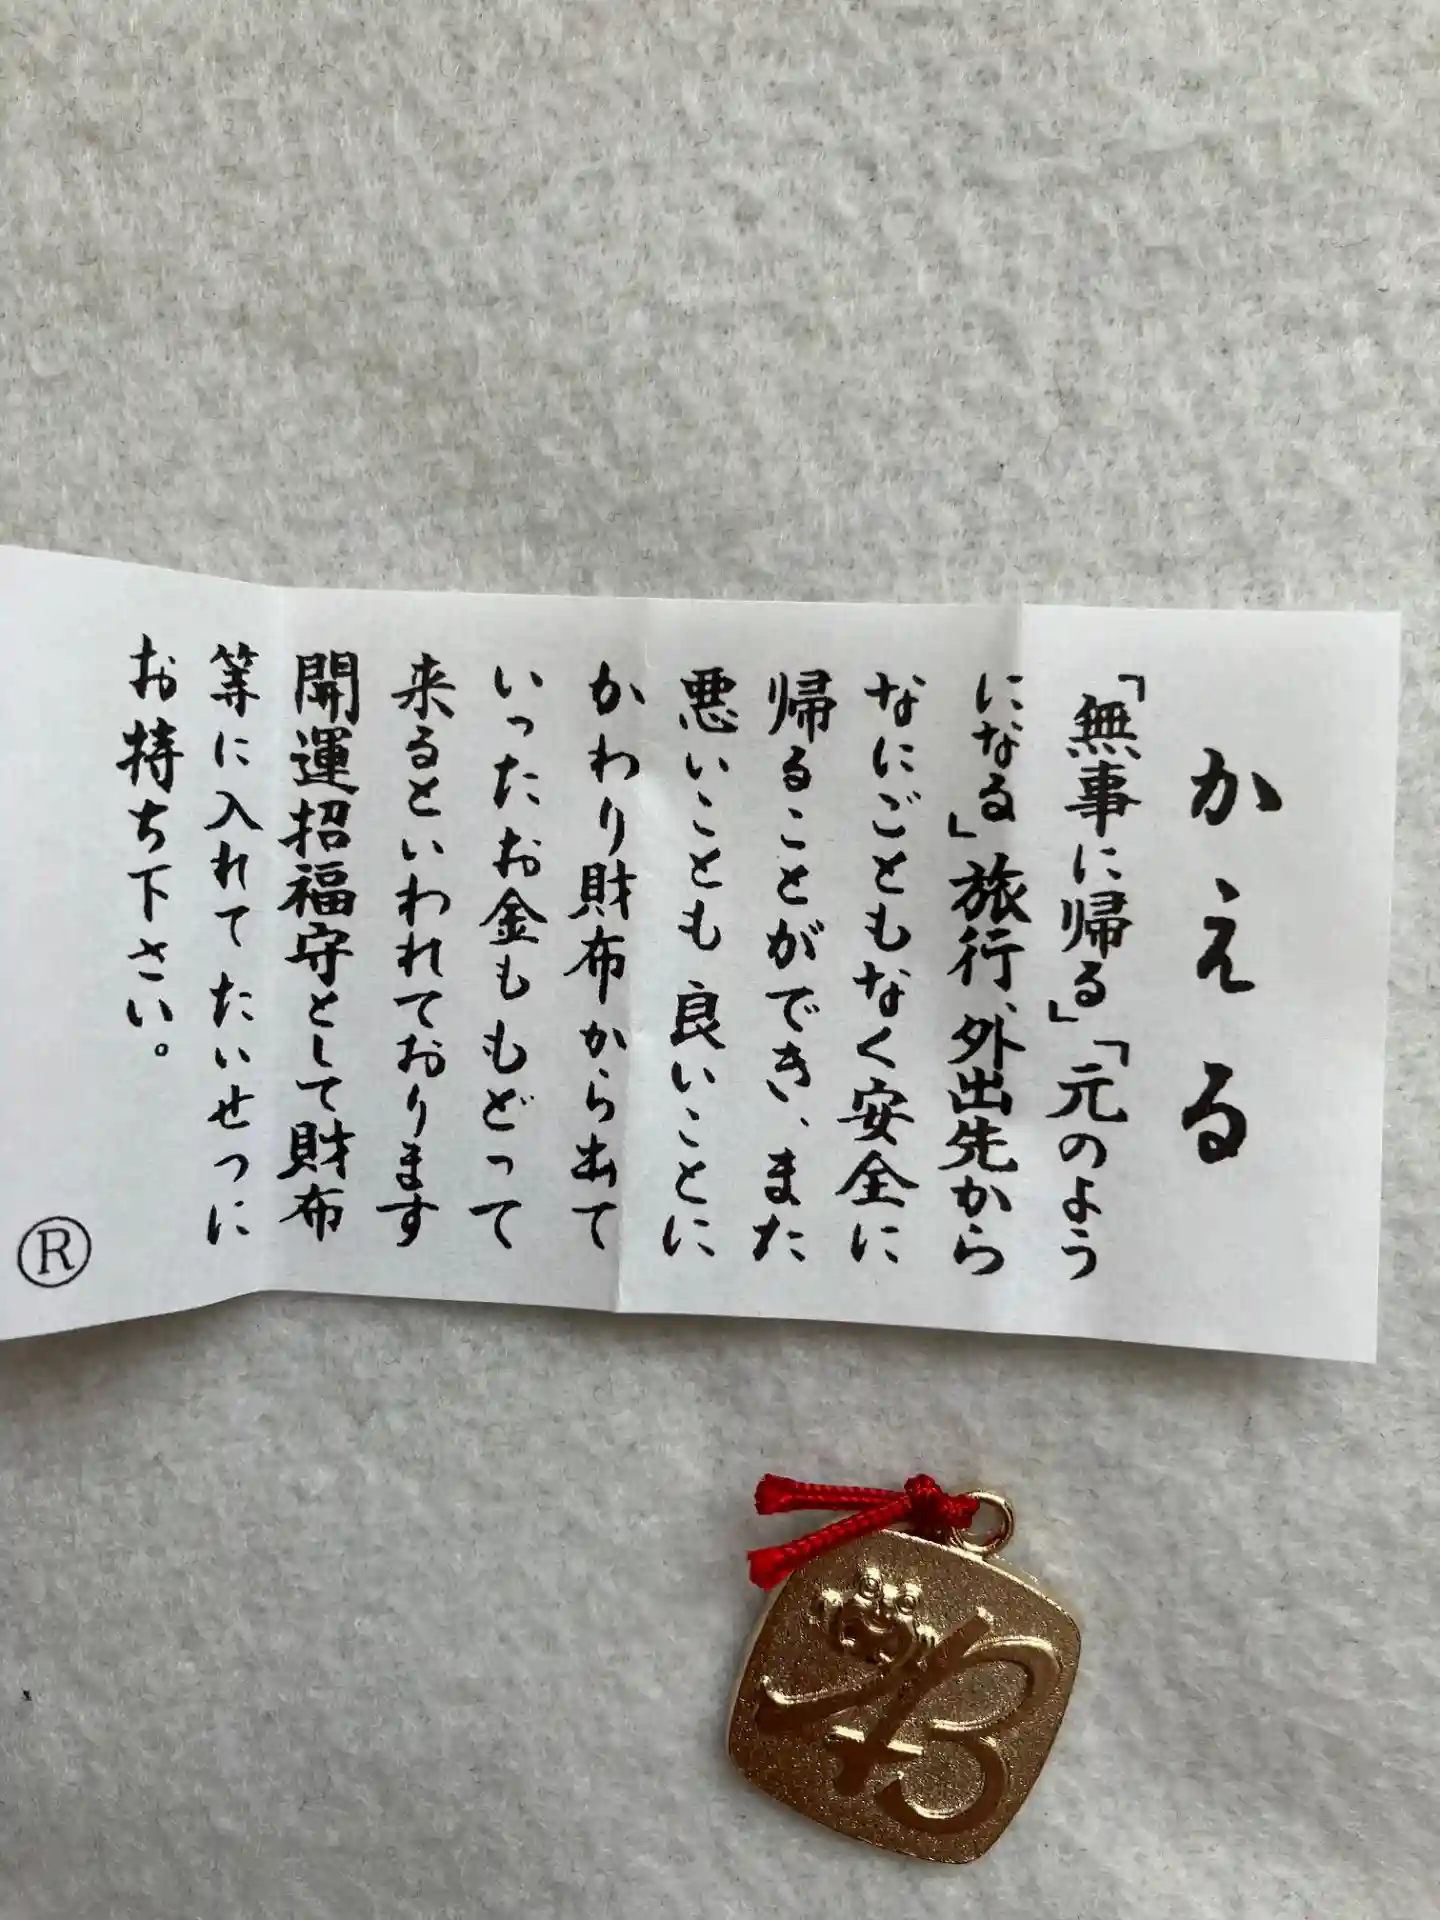 かえる
「無事に帰る」「元のよう
になる」旅行、外出先から
なにごともなく安全に
帰ることができ、また
悪いことも良いことに
かわり財布から出て
いったお金ももどって
来るといわれております
開運招福守として財布
等に入れてたいせつに
お持ち下さい。
Ⓡ
AB